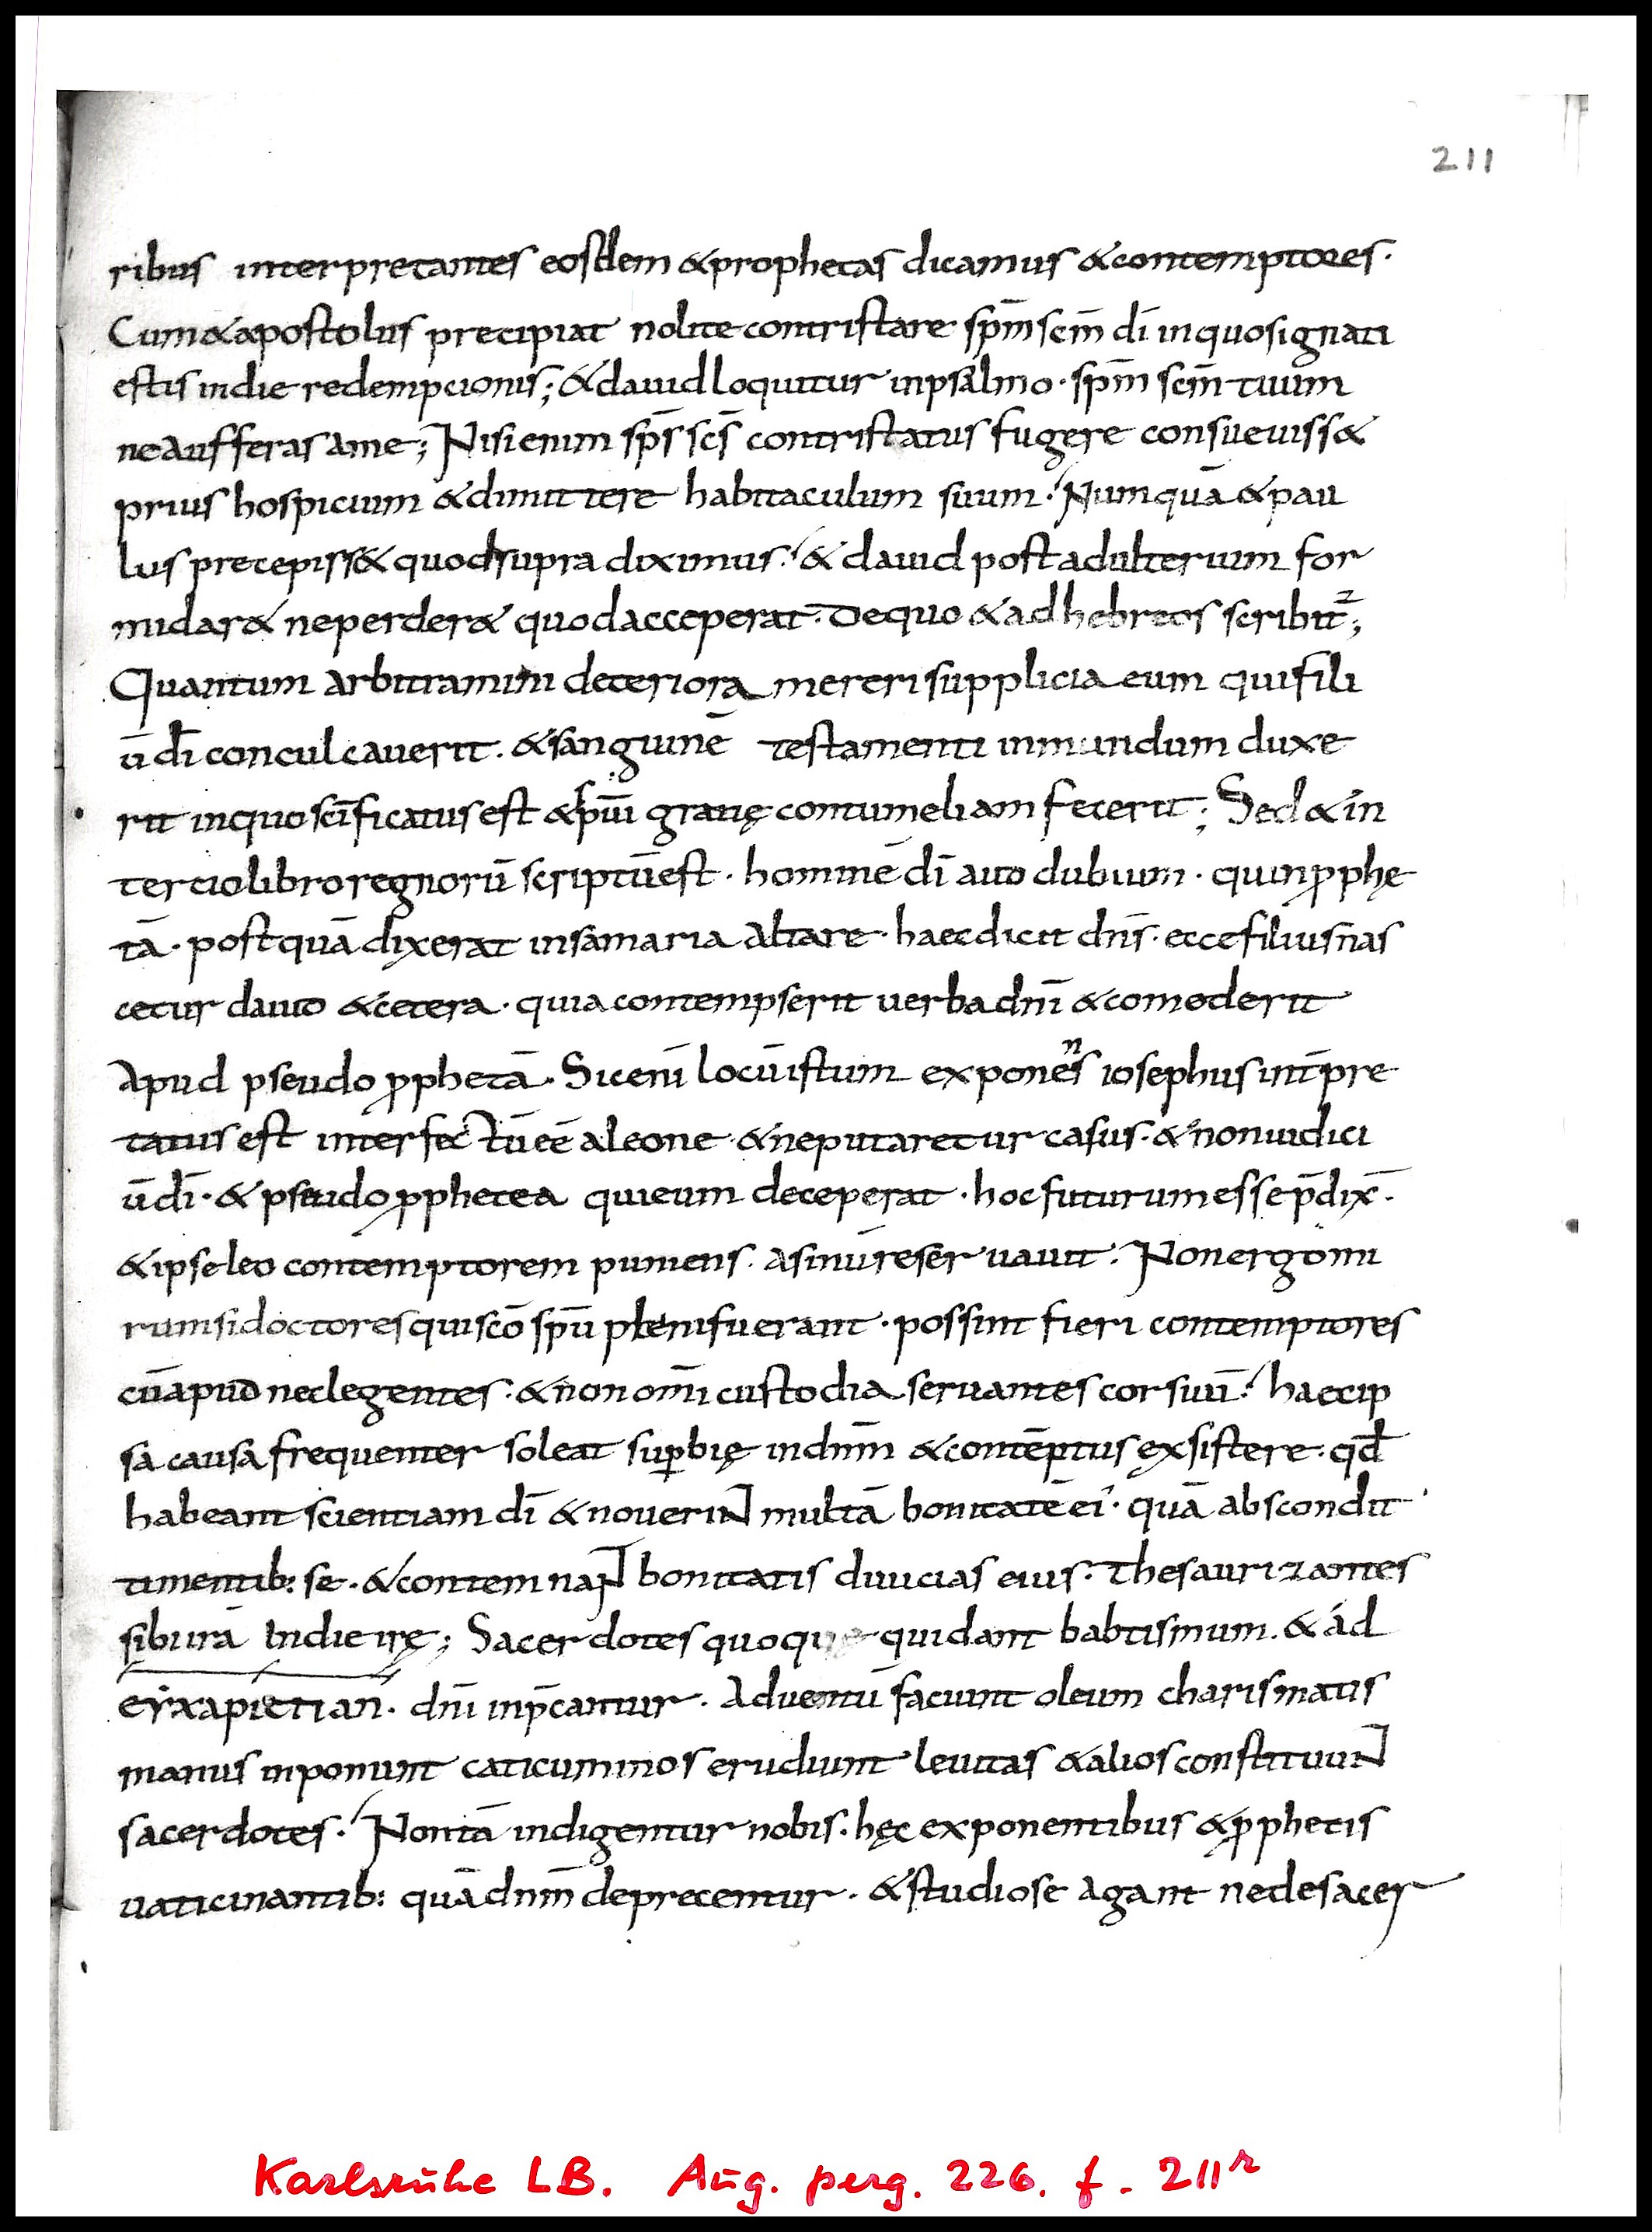 211
ribus interpretantes eosdem & prophetas dicamus & contemptores.
Cum & apostolus precipiat nolite contristare sp̄m sc̄m dī in quo signati
estis in die redempcionis; & dauid loquitur in psalmo · sp̄m sc̄m tuum
ne aufferas a me; Nisi enim sp̄s sc̄s contristatus fugere consueuiss&
prius hospicium & dimittere habitaculum suum · Numquā & pau
lus precepiss& quod supra diximus · & dauid post adulterium for
midar& ne perder& quod acceperat · De quo & ad hebreos scribit²;
Quantum arbitramini deteriora mereri supplicia eum qui fili
ū dī conculcauerit · & sanguinē testamenti inmundum duxe
rit in quo scīficatus est & spīui gratię contumeliam fecerit; Sed & in
tercio libro regnorū scriptū est · hominē dī auto dubium · quin pphę
tā · postquā dixerat in samaria altare · haec dicit dn̄s · ecce filius nas
cetur dauid & cetera · quia contempserit uerba dn̄i & comederit
Apud pseudo pphetā · Sic enī locū istum exponeⁿs iosephus int̄pre
tatus est interfectū eē a leone & ne putaretur casus · & non iudici
ū dī · & pseudo pphetea qui eum deceperat · hoc futurum esse p̄dix̄ ·
& ipse leo contemptorem puniens · asinū reseruauit · Non ergo mi
rum si doctores qui scō spū pleni fuerant · possint fieri contemptores
cū apud neclegentes · & non om̄i custodia seruantes cor suū · haec ip
sa causa frequenter soleat supbię in dn̄m & contēptus exsistere · qd̄
habeant scientiam dī & nouerint multā bonitatē ei' · quā abscondit
timentib: se · & contemnant bonitatis diuicias eius · Thesaurizantes
sibi irā In die irę; Sacerdotes quoque qui dant babtismum · & ad
eyxapietian · dn̄i inp̄cantur · Aduentū faciunt oleum charismatis
manus inponunt caticuminos erudiunt leuitas & alios constituunt
sacerdotes · Non tā indigentur nobis · hęc exponentibus & pphetis
uaticinantib: quā dn̄m deprecentur · & studiose agant ne de sacer
Karlsruhe LB. Aug. perg. 226. f. 211ʳ